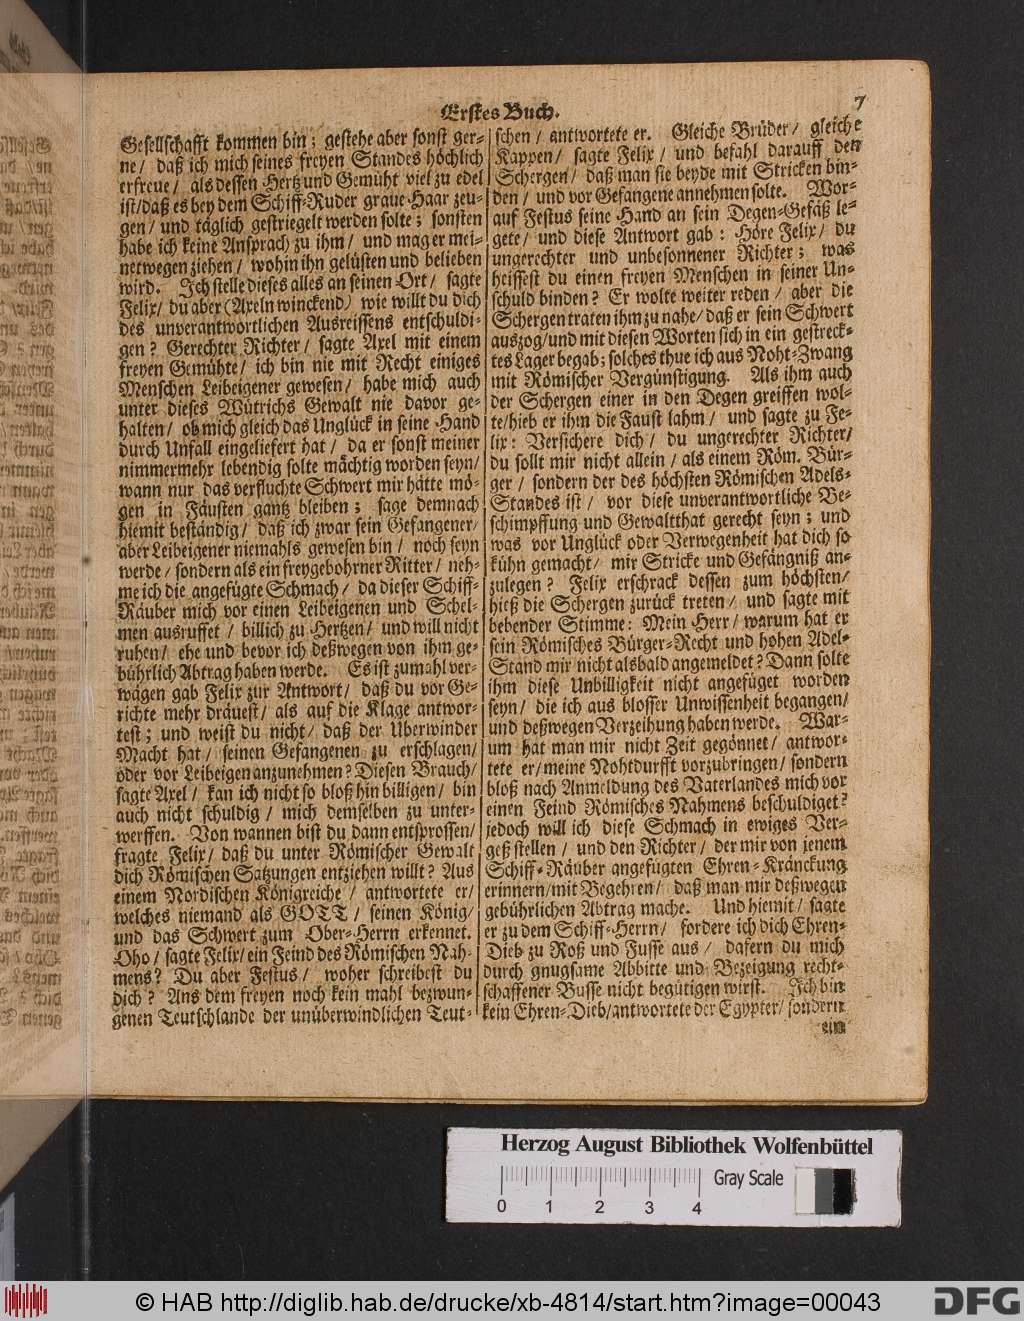 Erstes Buch.
7
Gesellschafft kommen bin; gestehe aber sonst ger-
ne/ daß ich mich seines freyen Standes höchlich
erfreue/ als dessen Hertz und Gemüht viel zu edel
ist/ daß es bey dem Schiff-Ruder graue-Haar zeu-
gen/ und täglich gestriegelt werden solte; sonsten
habe ich keine Ansprach zu ihm/ und mag er mei-
netwegen ziehen/ wohin ihn gelüsten und belieben
wird. Ich stelle dieses alles an seinen Ort/ sagte
Felix/ du aber (Axeln winckend) wie willt du dich
des unverantwortlichen Ausreissens entschuldi-
gen? Gerechter Richter/ sagte Axel mit einem
freyen Gemühte/ ich bin nie mit Recht einiges
Menschen Leibeigener gewesen/ habe mich auch
unter dieses Wütrichs Gewalt nie davor ge-
halten/ ob mich gleich das Unglück in seine Hand
durch Unfall eingeliefert hat/ da er sonst meiner
nimmermehr lebendig solte mächtig worden seyn/
wann nur das verfluchte Schwert mir hätte mö-
gen in Fäusten gantz bleiben; sage demnach
hiemit beständig/ daß ich zwar sein Gefangener/
aber Leibeigener niemahls gewesen bin/ noch seyn
werde/ sondern als ein freygebohrner Ritter/ neh-
me ich die angefügte Schmach/ da dieser Schiff-
Räuber mich vor einen Leibeigenen und Schel-
men ausruffet/ billich zu Hertzen/ und will nicht
ruhen/ ehe und bevor ich deßwegen von ihm ge-
bührlich Abtrag haben werde. Es ist zumahl ver-
wägen gab Felix zur Antwort/ daß du vor Ge-
richte mehr dräuest/ als auf die Klage antwor-
test; und weist du nicht/ daß der Überwinder
Macht hat/ seinen Gefangenen zu erschlagen/
oder vor Leibeigen anzunehmen? Diesen Brauch/
sagte Axel/ kan ich nicht so bloß hin billigen/ bin
auch nicht schuldig/ mich demselben zu unter-
werffen. Von wannen bist du dann entsprossen/
fragte Felix/ daß du unter Römischer Gewalt
dich Römischen Satzungen entziehen willt? Aus
einem Nordischen Königreiche/ antwortete er/
welches niemand als GOTT/ seinen König/
und das Schwert zum Ober-Herrn erkennet.
Oho/ sagte Felix/ ein Feind des Römischen Nah-
mens? Du aber Festus/ woher schreibest du
dich? Aus dem freyen noch kein mahl bezwun-
genen Teutschlande der unüberwindlichen Teut-
schen/ antwortete er. Gleiche Brüder/ gleiche
Kappen/ sagte Felix/ und befahl darauff den
Schergen/ daß man sie beyde mit Stricken bin-
den/ und vor Gefangene annehmen solte. Wor-
auf Festus seine Hand an sein Degen-Gefäß le-
gete/ und diese Antwort gab: Höre Felix/ du
ungerechter und unbesonnener Richter; was
heissest du einen freyen Menschen in seiner Un-
schuld binden? Er wolte weiter reden/ aber die
Schergen traten ihm zu nahe/ daß er sein Schwert
auszog/ und mit diesen Worten sich in ein gestreck-
tes Lager begab; solches thue ich aus Noht-Zwang
mit Römischer Vergünstigung. Als ihm auch
der Schergen einer in den Degen greiffen wol-
te/ hieb er ihm die Faust lahm/ und sagte zu Fe-
lix: Versichere dich/ du ungerechter Richter/
du sollt mir nicht allein/ als einem Röm. Bür-
ger/ sondern der des höchsten Römischen Adels-
Standes ist/ vor diese unverantwortliche Be-
schimpffung und Gewaltthat gerecht seyn; und
was vor Unglück oder Verwegenheit hat dich so
kühn gemacht/ mir Stricke und Gefängniß an-
zulegen? Felix erschrack dessen zum höchsten/
hieß die Schergen zurück treten/ und sagte mit
bebender Stimme: Mein Herr/ warum hat er
sein Römisches Bürger-Recht und hohen Adel-
Stand mir nicht alsbald angemeldet? Dann solte
ihm diese Unbilligkeit nicht angefüget worden
seyn/ die ich aus blosser Unwissenheit begangen/
und deßwegen Verzeihung haben werde. War-
um hat man mir nicht Zeit gegönnet/ antwor-
tete er/ meine Nohtdurfft vorzubringen/ sondern
bloß nach Anmeldung des Vaterlandes mich vor
einen Feind Römisches Nahmens beschuldiget?
jedoch will ich diese Schmach in ewiges Ver-
geß stellen/ und den Richter/ der mir von jenem
Schiff-Räuber angefügten Ehren-Kränckung
erinnern/ mit Begehren/ daß man mir deßwegen
gebührlichen Abtrag mache. Und hiemit/ sagte
er zu dem Schiff-Herrn/ fordere ich dich Ehren-
Dieb zu Roß und Fusse aus/ dafern du mich
durch gnugsame Abbitte und Bezeigung recht-
schaffener Busse nicht begütigen wirst. Ich bin
kein Ehren-Dieb/ antwortete der Egypter/ sondern
ein
Herzog August Bibliothek Wolfenbüttel
Gray Scale
0 1 2 3 4
© HAB http://diglib.hab.de/drucke/xb-4814/start.htm?image=00043
DFG